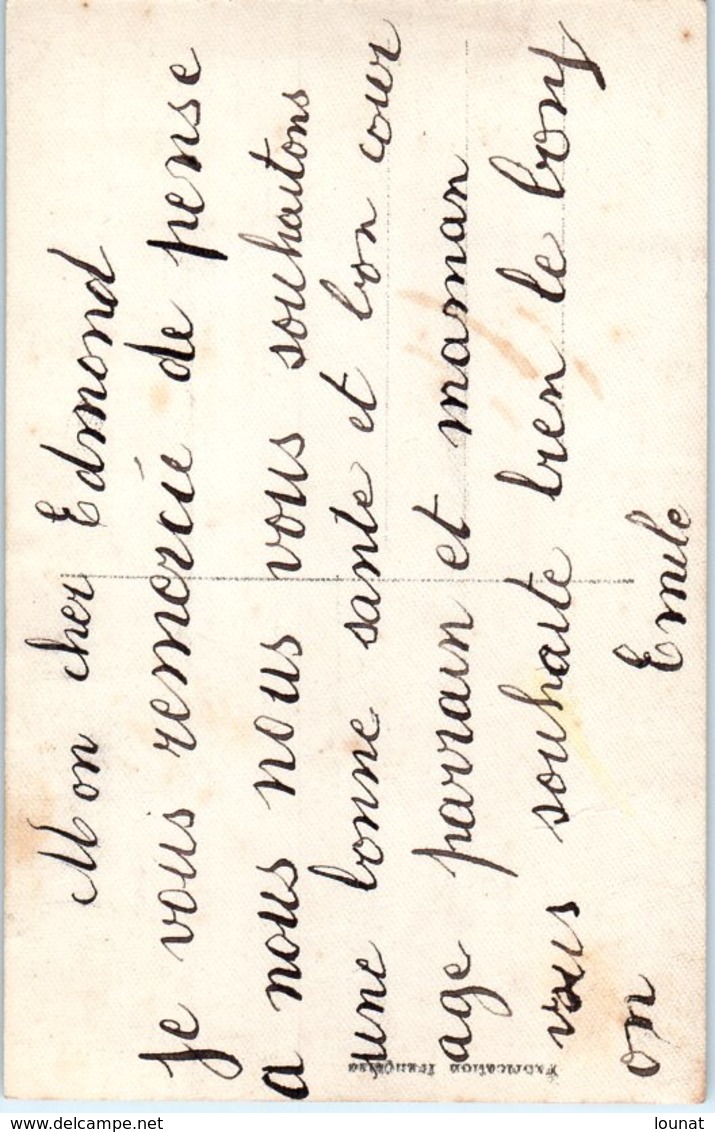 Mon cher Edmond
je vous remercie de pense
a nous nous vous souhaitons
une bonne sante et bon cour
age parrain et maman
vous souhaite bien le bonj
on
Emile
Fabrication Française
lounat